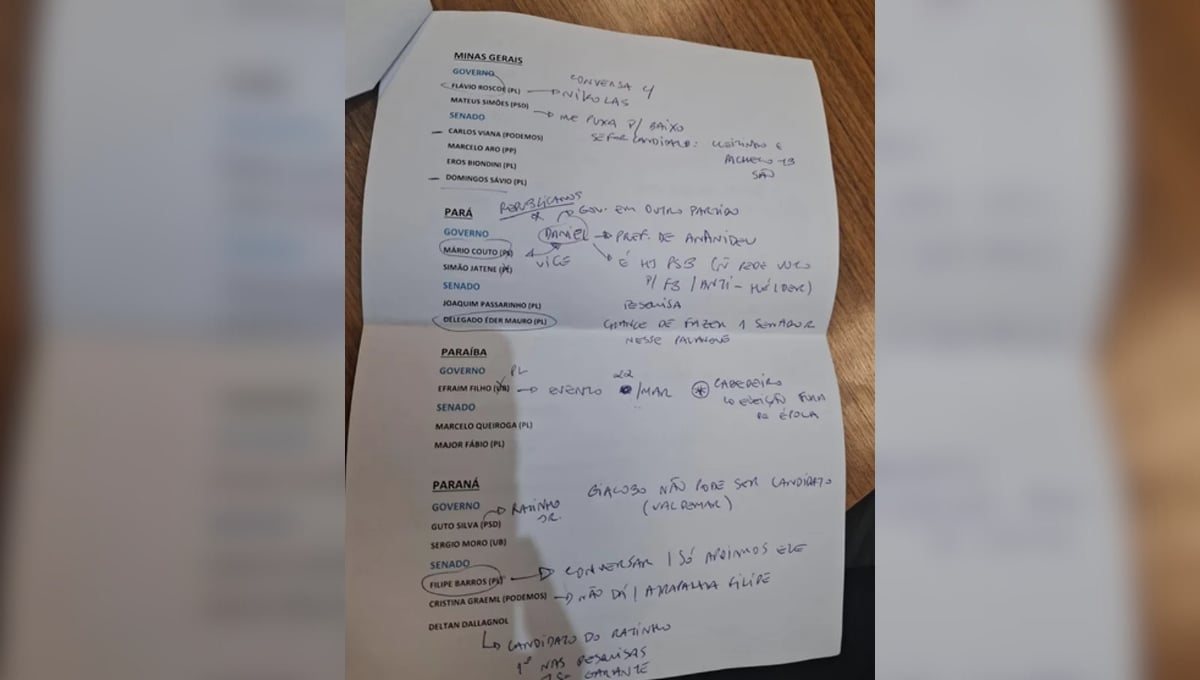 MINAS GERAIS
GOVERNO
FLÁVIO ROSCOE (PL) → NIKOLAS
CONVERSA C/
MATEUS SIMÕES (PSD) → ME PUXA P/ BAIXO
SENADO
SE FOR CANDIDATO: CLEITINHO E
CARLOS VIANA (PODEMOS)
PACHECO
MARCELO ARO (PP)
SÃO
EROS BIONDINI (PL)
DOMINGOS SÁVIO (PL)
REPUBLICANOS
PARÁ
GOV. EM OUTRO PARTIDO
GOVERNO
DANIEL → PREF. DE ANANIDEU
MÁRIO COUTO (PL)
VICE
É HJ PSB
SIMÃO JATENE
P/ FB / ANTI-HÉLDER)
SENADO
PESQUISA
JOAQUIM PASSARINHO (PL)
DELEGADO ÉDER MAURO (PL)
CHANCE DE FAZER 1 SENADOR
NESSE PALANQUE
PARAÍBA
GOVERNO
PL
EFRAIM FILHO (UB) → EVENTO 22/MAR
CABEDELO
ELEIÇÃO FORA
DE ÉPOCA
SENADO
MARCELO QUEIROGA (PL)
MAJOR FÁBIO (PL)
PARANÁ
GIACOBO NÃO PODE SER CANDIDATO
(VALDEMAR)
GOVERNO
GUTO SILVA (PSD) → RATINHO
JR.
SERGIO MORO (UB)
SENADO
FILIPE BARROS (PL) → CONVERSAR / SÓ APOIAMOS ELE
CRISTINA GRAEML (PODEMOS) → NÃO DÁ / ATRAPALHA FILIPE
DELTAN DALLAGNOL
CANDIDATO DO RATINHO
1º NAS PESQUISAS
GARANTE